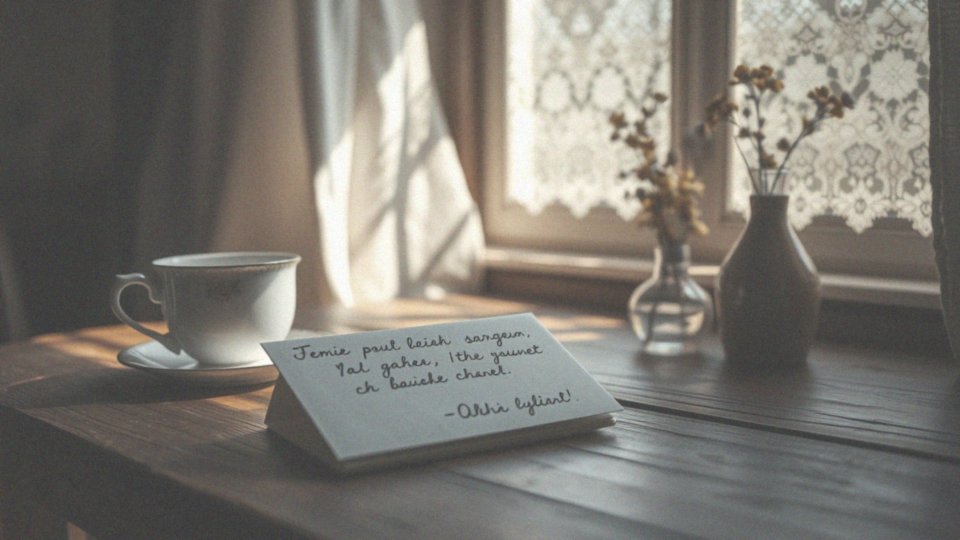 Jemie paul beish sangein,
Yal gahee, Ithe younet
ch bauiche chanel.
-Olhhi lyliant!.